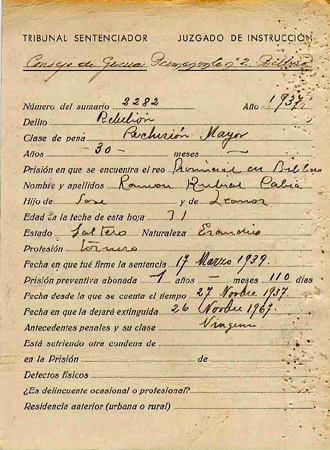 TRIBUNAL SENTENCIADOR JUZGADO DE INSTRUCCIÓN
Consejo de Guerra Permanente nº 2. Bilbao
Número del sumario 2282 Año 1937
Delito Rebelión
Clase de pena Reclusión Mayor
Años -30- meses —
Prisión en que se encuentra el reo Provincial en Bilbao
Nombre y apellidos Ramon Rubial Cabia
Hijo de Jose y de Leonor
Edad a la fecha de esta hoja 31
Estado Soltero Naturaleza Erandio
Profesión tornero
Fecha en que fué firme la sentencia 17 Marzo 1939.
Prisión preventiva abonada 1 años — meses 110 días
Fecha desde la que se cuenta el tiempo 27 Novbre 1937.
Fecha en que la dejará extinguida 26 Novbre 1967.
Antecedentes penales y su clase Ninguno
Está sufriendo otra condena de
en la Prisión de
Defectos físicos
¿Es delincuente ocasional o profesional?
Residencia anterior (urbana o rural)